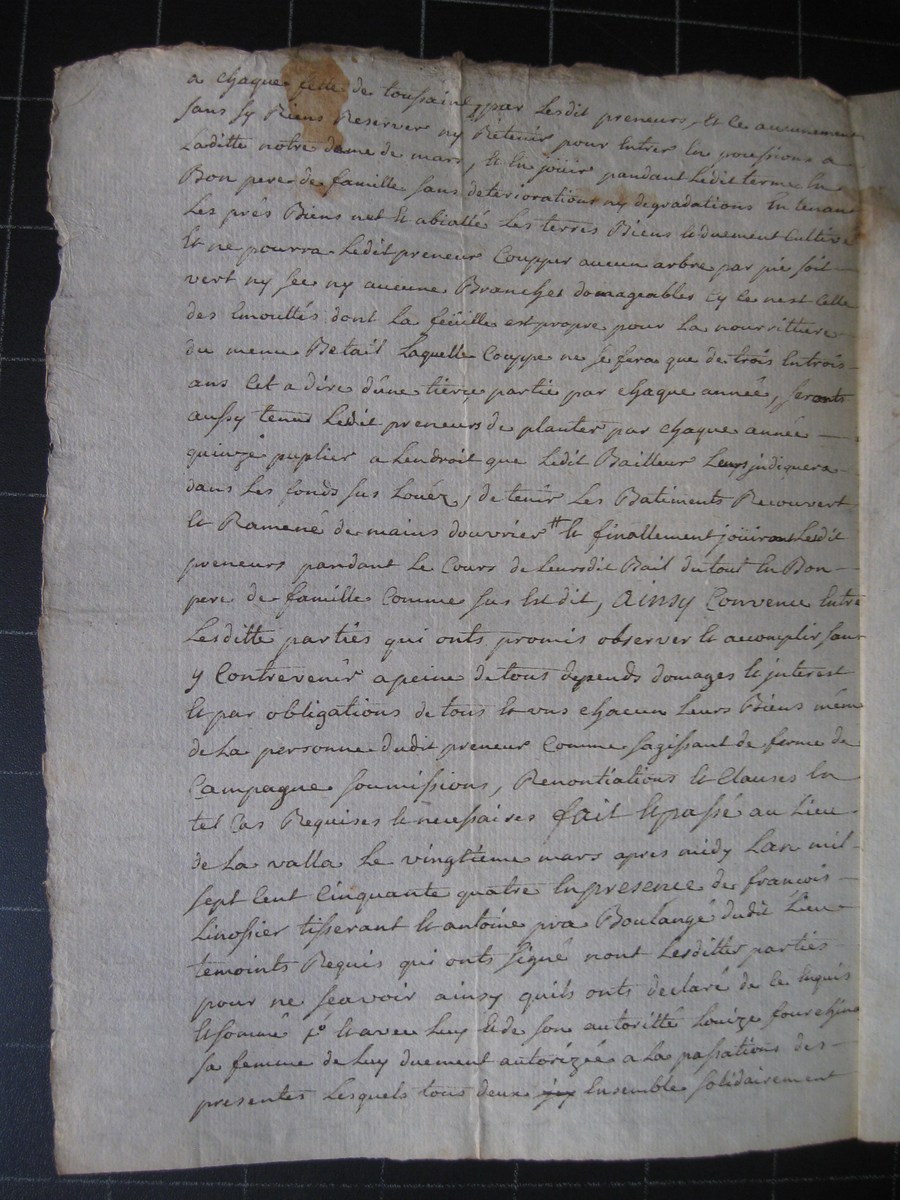 a chaque fette de toussaint, par lesdit preneurs, et ce aucunement
sans sy Riens Reserver ny Retenir pour entrer en poussions a
laditte notre dame de mars, et en joüir pandant ledit terme en
Bon pere de famille sans deteriorations ny degradations en tenant
les prés Biens net et abiallé les terres Biens et duement cultivé
et ne pourra ledit preneur Coupper aucun arbre par pié soit
vert ny sec ny aucune Branches domageables Cy ce nest celle
des Emouttés dont la feüille est propre pour la nourritture
du menu Betail laquelle Couppe ne se fera que de trois en trois
ans Cet a dire d'une tierce partie par chaque année, seronts
aussy tenu ledit preneurs de planter par chaque année
quinze puplier a lendroit que ledit Bailleur leurs judiquera
dans les fonds sus louéz, de tenir les Batiments Recouvert
et Ramené de mains douvrier # et finallement joüiront lesdit
preneurs pandant le Cours de leursdit Bail du tout en Bon
pere de famille Comme sus est dit, Ainsy Convenu Entre
lesditte parties qui onts promis observer et accomplir sans
y Contrevenir a peine de tous depends domages et jnterest
et par obligations de tous et uns chacun leurs Biens mém
de la personne dudit preneur Comme sagissant de ferme de
Campagne soumissions, Renontiations et Clauses en
tel Cas Requises et necessaires fait et passé au lieu
de la valla le vingtième mars apres midy lan mil
sept Cent Cinquante quatre en presence de francois
linossier tisserant et antoine pra Boulangé dudit lieu
temoints Requis qui onts signé nont lesdittes parties
pour ne scavoir ainsy quils onts declaré de ce enquis
et sommé et avec luy et de son autoritté louize fourchine
sa femme de luy duement autorizée a la passations des
presentes lesquels tous deux Ensemble solidairement